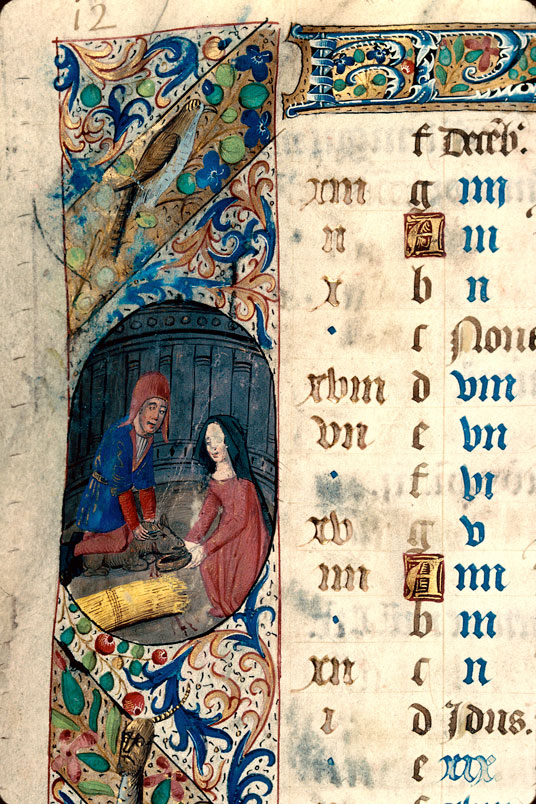 12
KL
f Decẽb'.
xiii g iiij
ii A iii
x b ii
· c None
xviii d viii
vii e vii
· f vi
xv g v
iiii A iiii
· b iii
xii c ii
i d Idus.
· e xix